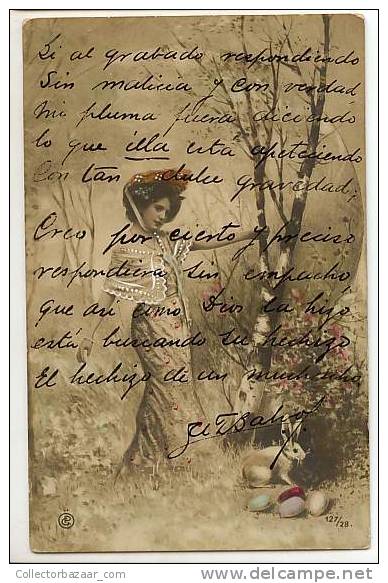 Si al grabado respondiendo
Sin malicia y con verdad
Mi pluma fuera diciendo
lo que ella está apeteciendo
Con tan dulce gravedad;
Creo por cierto y preciso
respondiera sin empacho
que así como Dios la hizo
está buscando su hechizo
El hechizo de un muchacho
127/28.
Collectorbazaar.com
delcampe.net